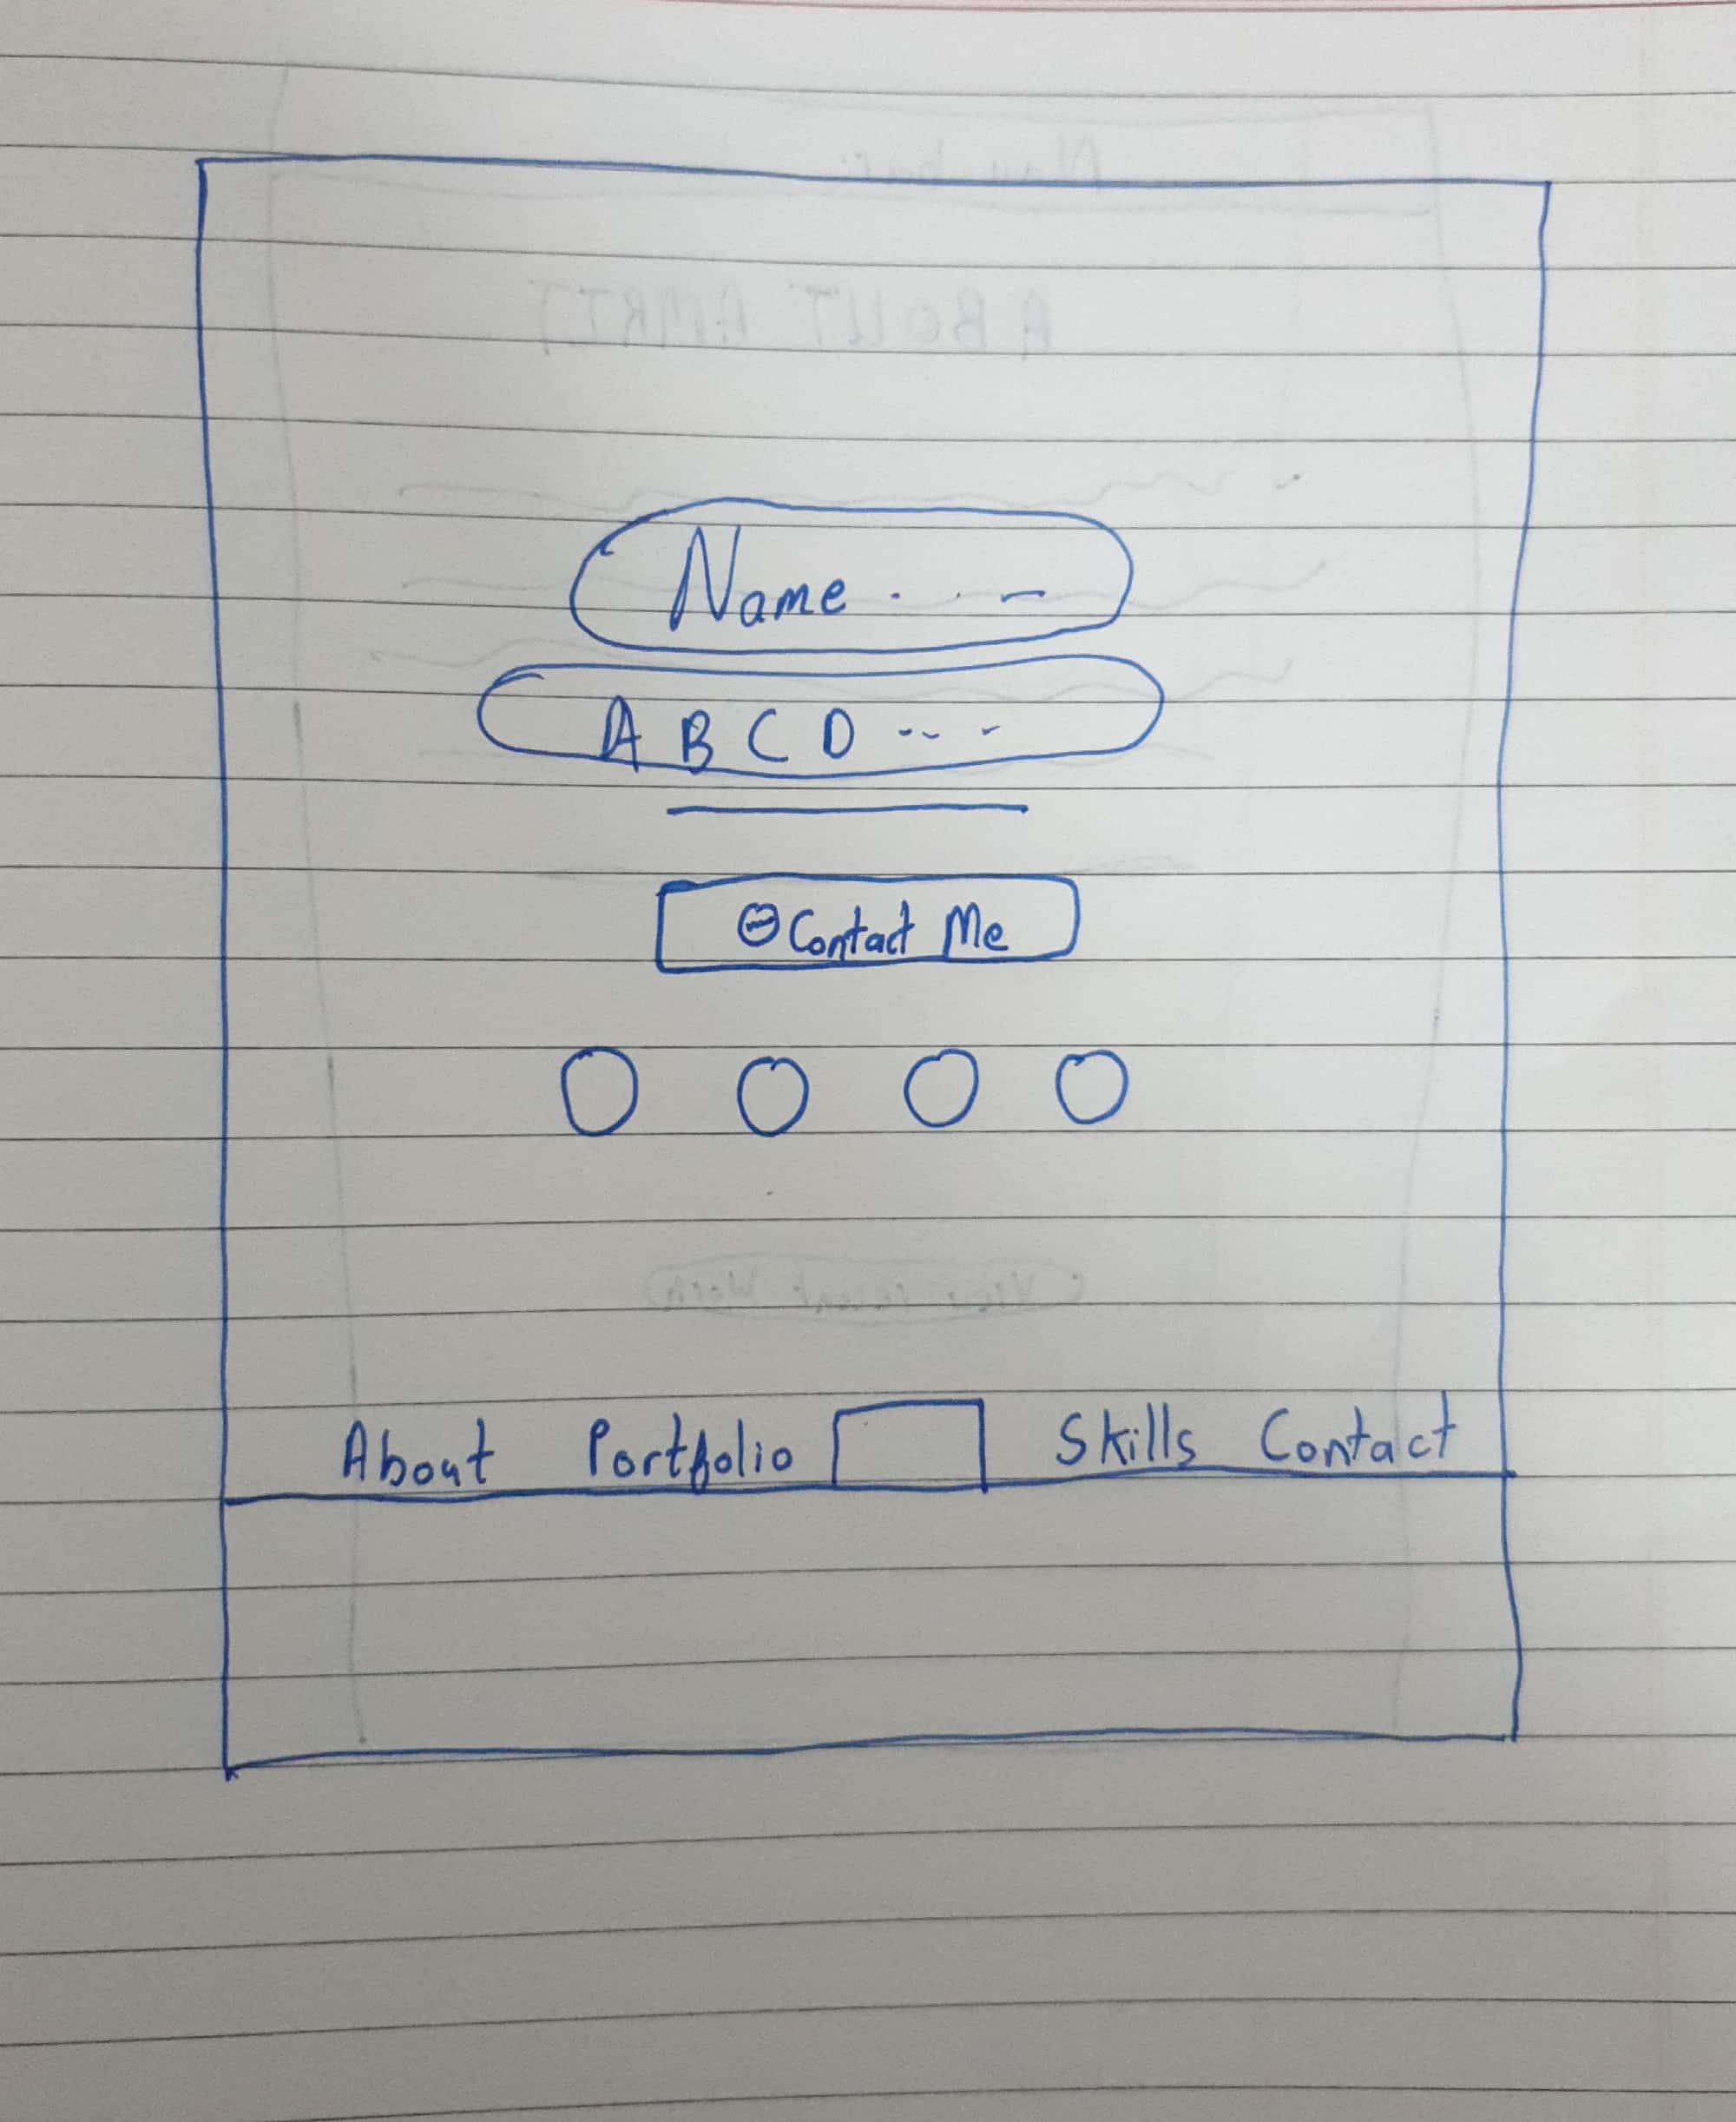 Name . . -
A B C D - - -
Contact Me
About Portfolio Skills Contact